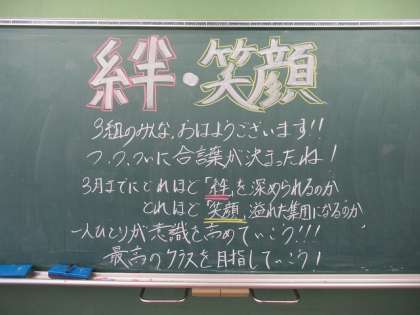 絆・笑顔
3組のみんな、おはようございます!!
つ、つ、ついに合言葉が決まったね!
3月までにどれほど「絆」を深められるのか
どれほど「笑顔」溢れた集団になるのか
一人ひとりが意識を高めていこう!!!
最高のクラスを目指していこう!